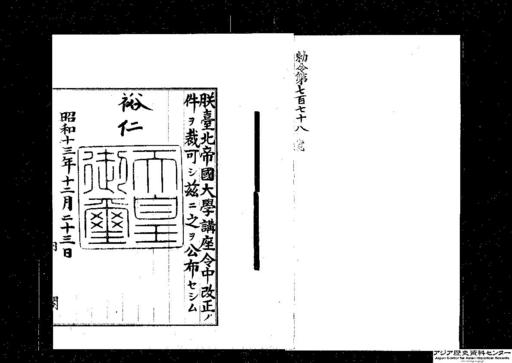 勅令第七百七十八號
朕臺北帝國大學講座令中改正ノ
件ヲ裁可シ茲ニ之ヲ公布セシム
裕仁
天皇
御璽
昭和十三年十二月二十三日
内閣
アジア歴史資料センター
Japan Center for Asian Historical Records